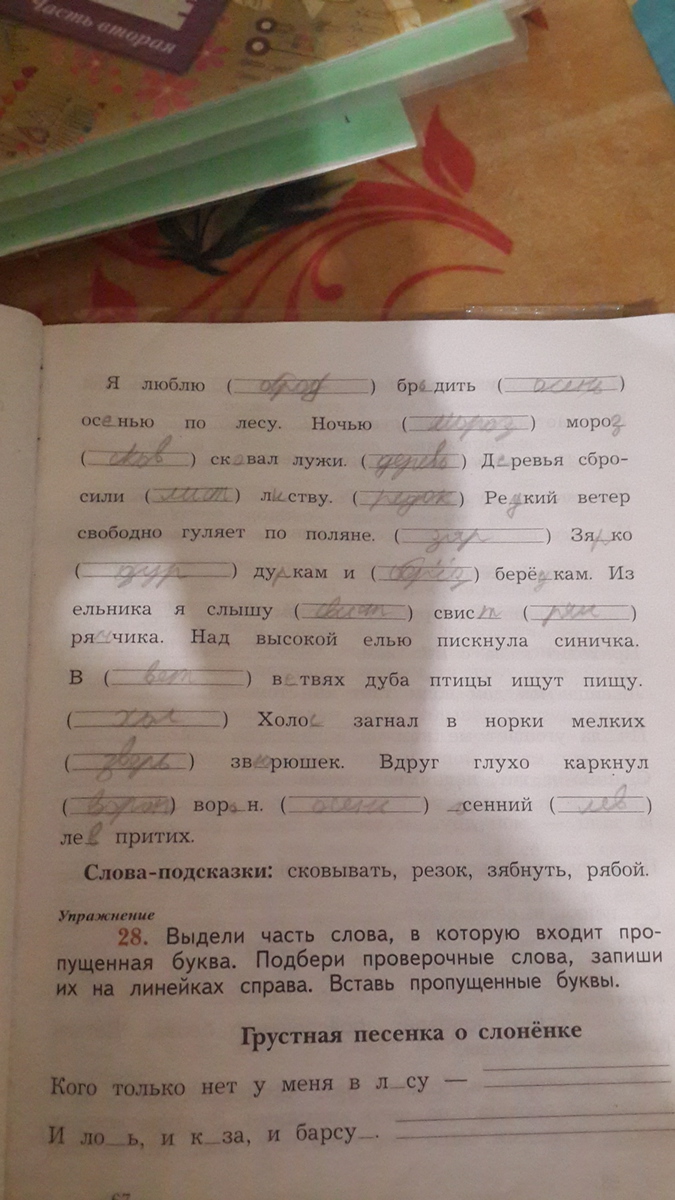 Часть вторая
Я люблю (брод) бродить (осень)
осенью по лесу. Ночью (мороз) мороз
(сков) сковал лужи. (деревь) Деревья сбро-
сили (лист) листву. (редок) Редкий ветер
свободно гуляет по поляне. (зяр) Зярко
(дур) дуркам и (берёз) берёзкам. Из
ельника я слышу (свист) свист (рян)
рячика. Над высокой елью пискнула синичка.
В (вет) ветвях дуба птицы ищут пищу.
(хол) Холос загнал в норки мелких
(зверь) зверюшек. Вдруг глухо каркнул
(ворон) ворон. (осень) осенний (лев)
лев притих.
Слова-подсказки: сковывать, резок, зябнуть, рябой.
Упражнение
28. Выдели часть слова, в которую входит про-
пущенная буква. Подбери проверочные слова, запиши
их на линейках справа. Вставь пропущенные буквы.
Грустная песенка о слонёнке
Кого только нет у меня в л_су —
И ло_ь, и к_за, и барсу_.
67